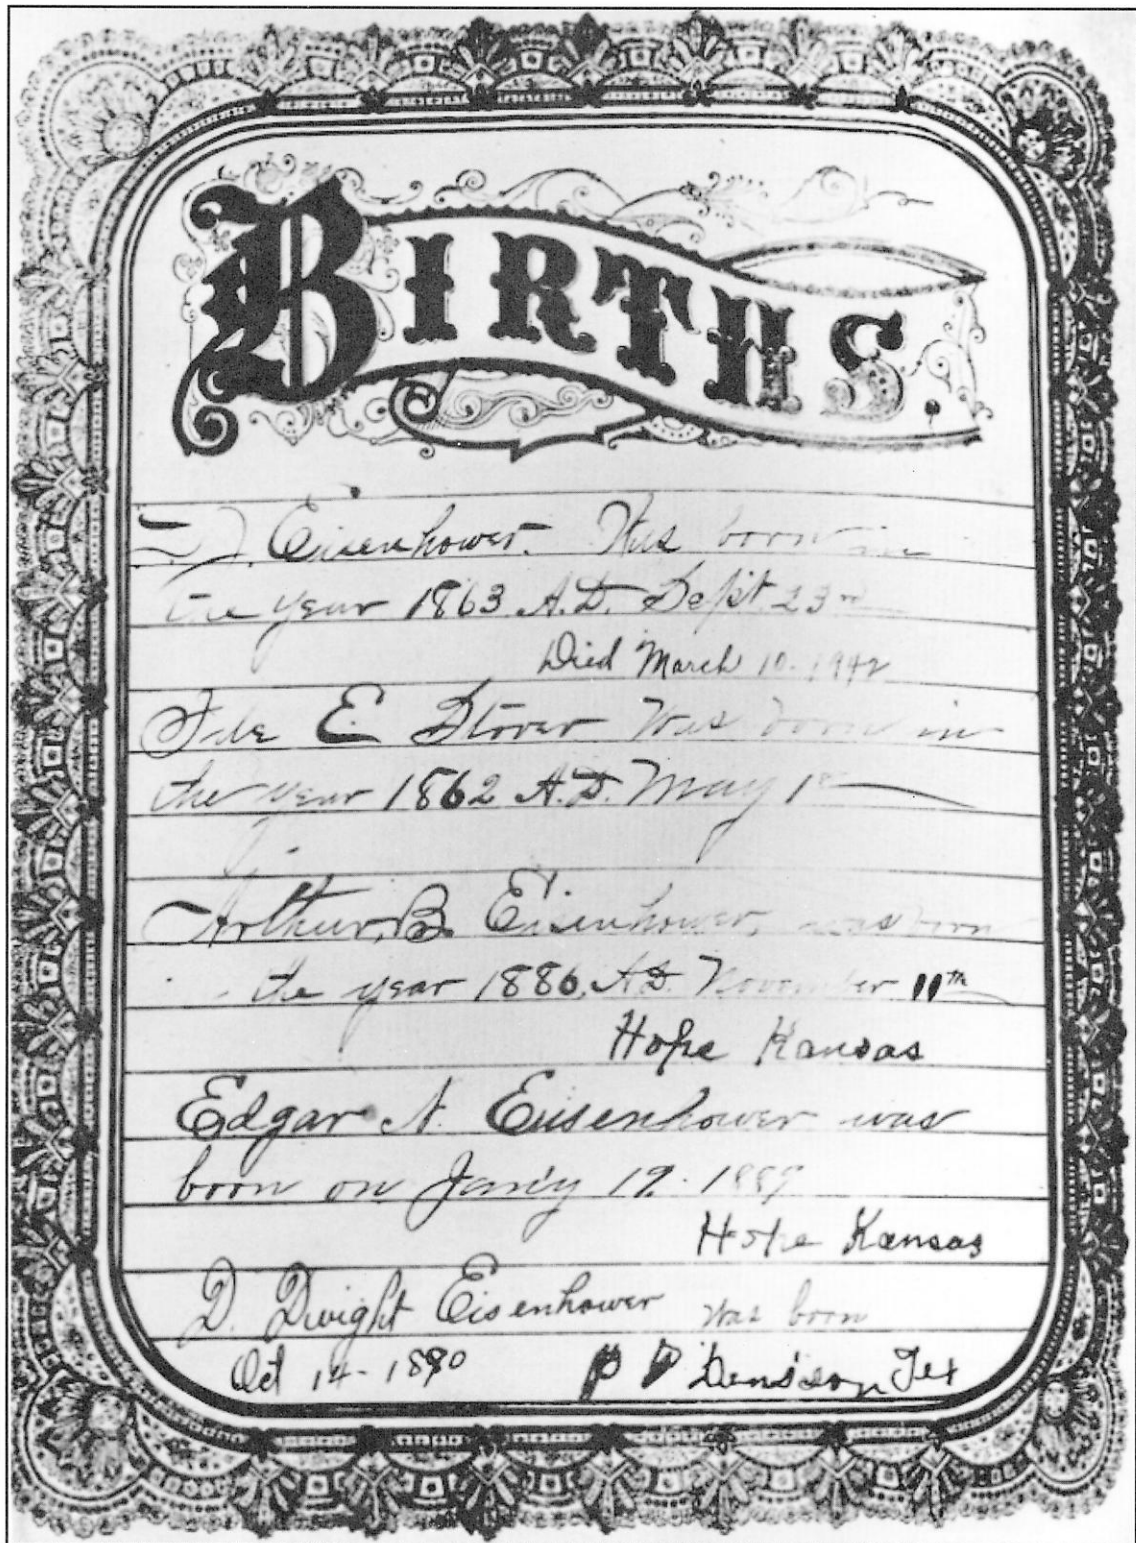 BIRTHS.
D. J. Eisenhower. Was born in
the year 1863 A.D. Sept 23rd
Died March 10. 1942
Ida E Stover Was born in
the year 1862 A.D. May 1st
Arthur, B. Eisenhower, was born
the year 1886, A.D. November 11th
Hope Kansas
Edgar N. Eisenhower was
born on Jan'y 19. 1889
Hope Kansas
D. Dwight Eisenhower was born
Oct 14-1890 Denison Tex